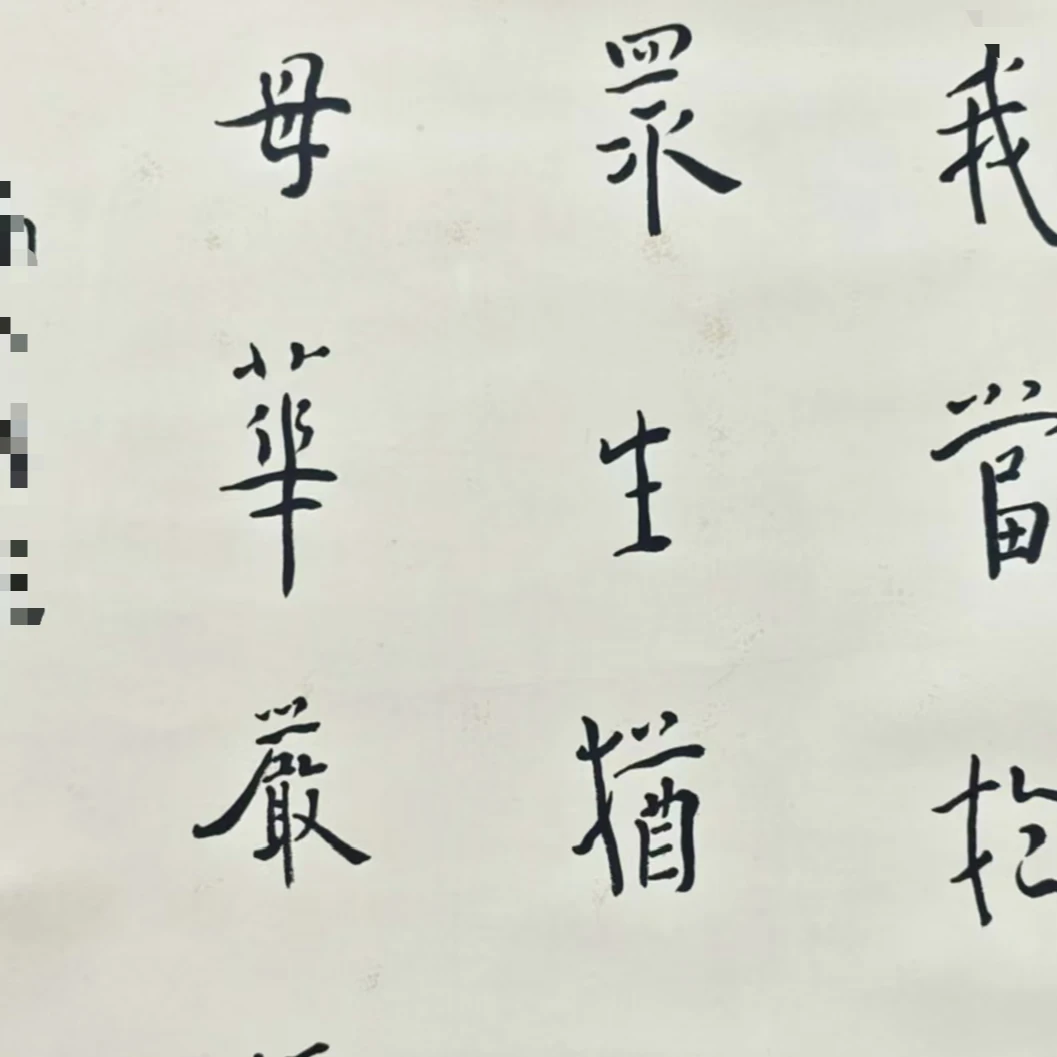 我當扵
眾生猶
母華嚴